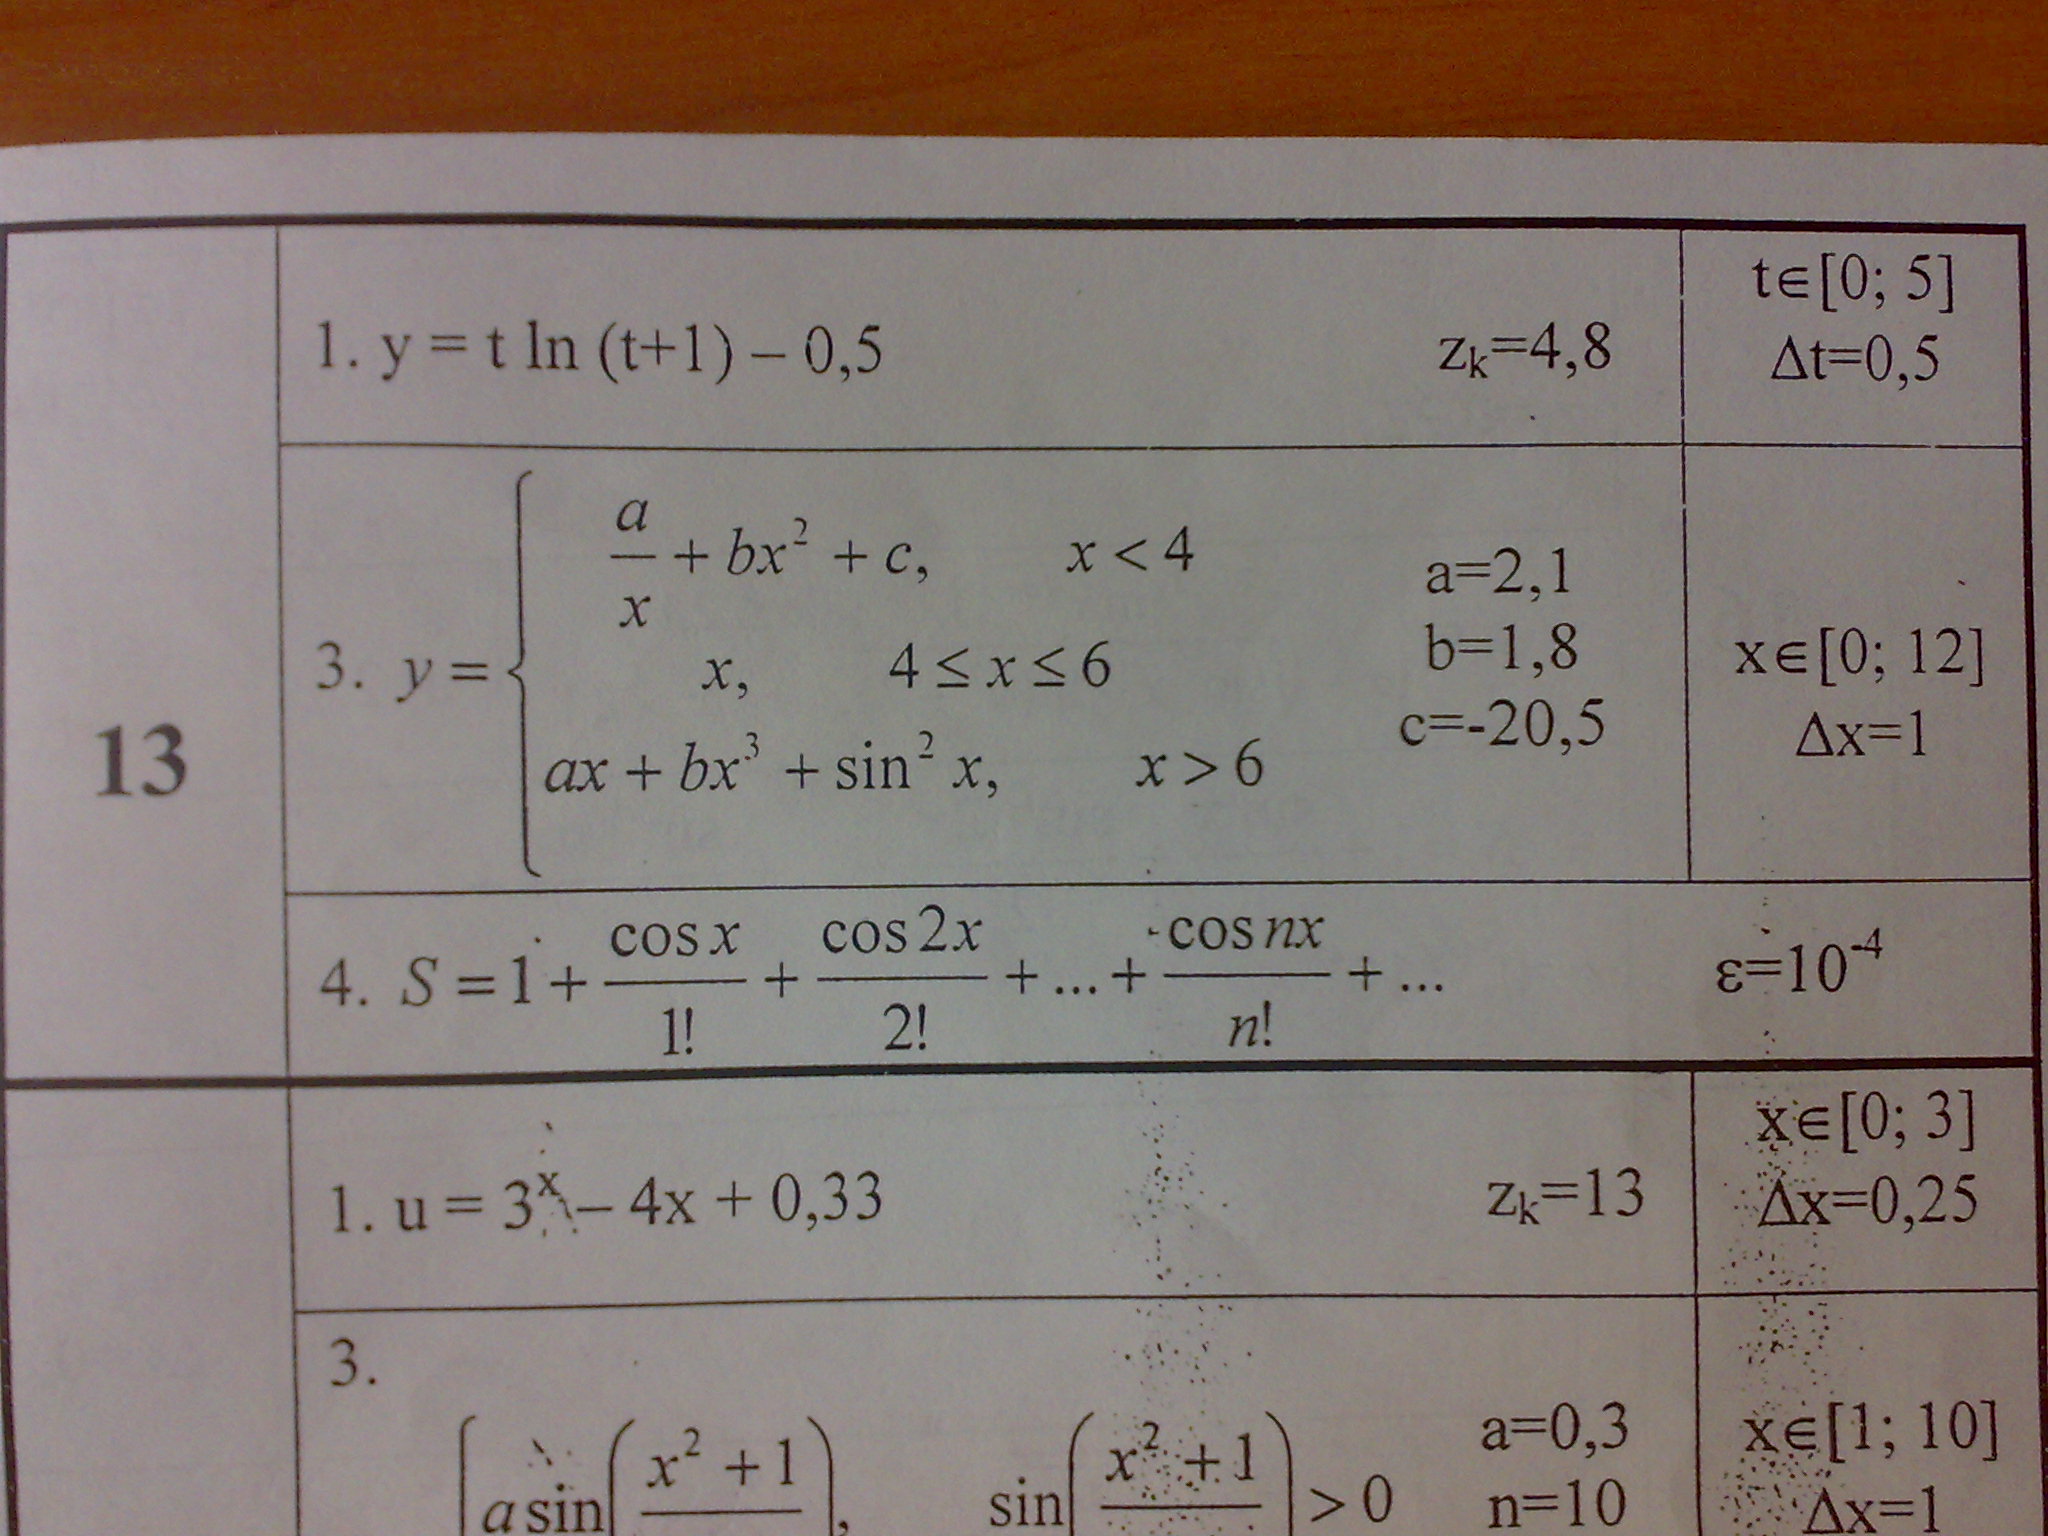 13
1. y = t ln (t+1) – 0,5 zₖ=4,8 t∈[0; 5]
Δt=0,5
3. y = { a/x + bx² + c, x < 4
x, 4 ≤ x ≤ 6
ax + bx³ + sin² x, x > 6
a=2,1
b=1,8
c=-20,5
x∈[0; 12]
Δx=1
4. S = 1 + cos x/1! + cos 2x/2! + ... + cos nx/n! + ... ε=10⁻⁴
1. u = 3ˣ – 4x + 0,33 zₖ=13 x∈[0; 3]
Δx=0,25
3.
a sin( x² + 1 ), sin( x² + 1 ) > 0
a=0,3
n=10
x∈[1; 10]
Δx=1